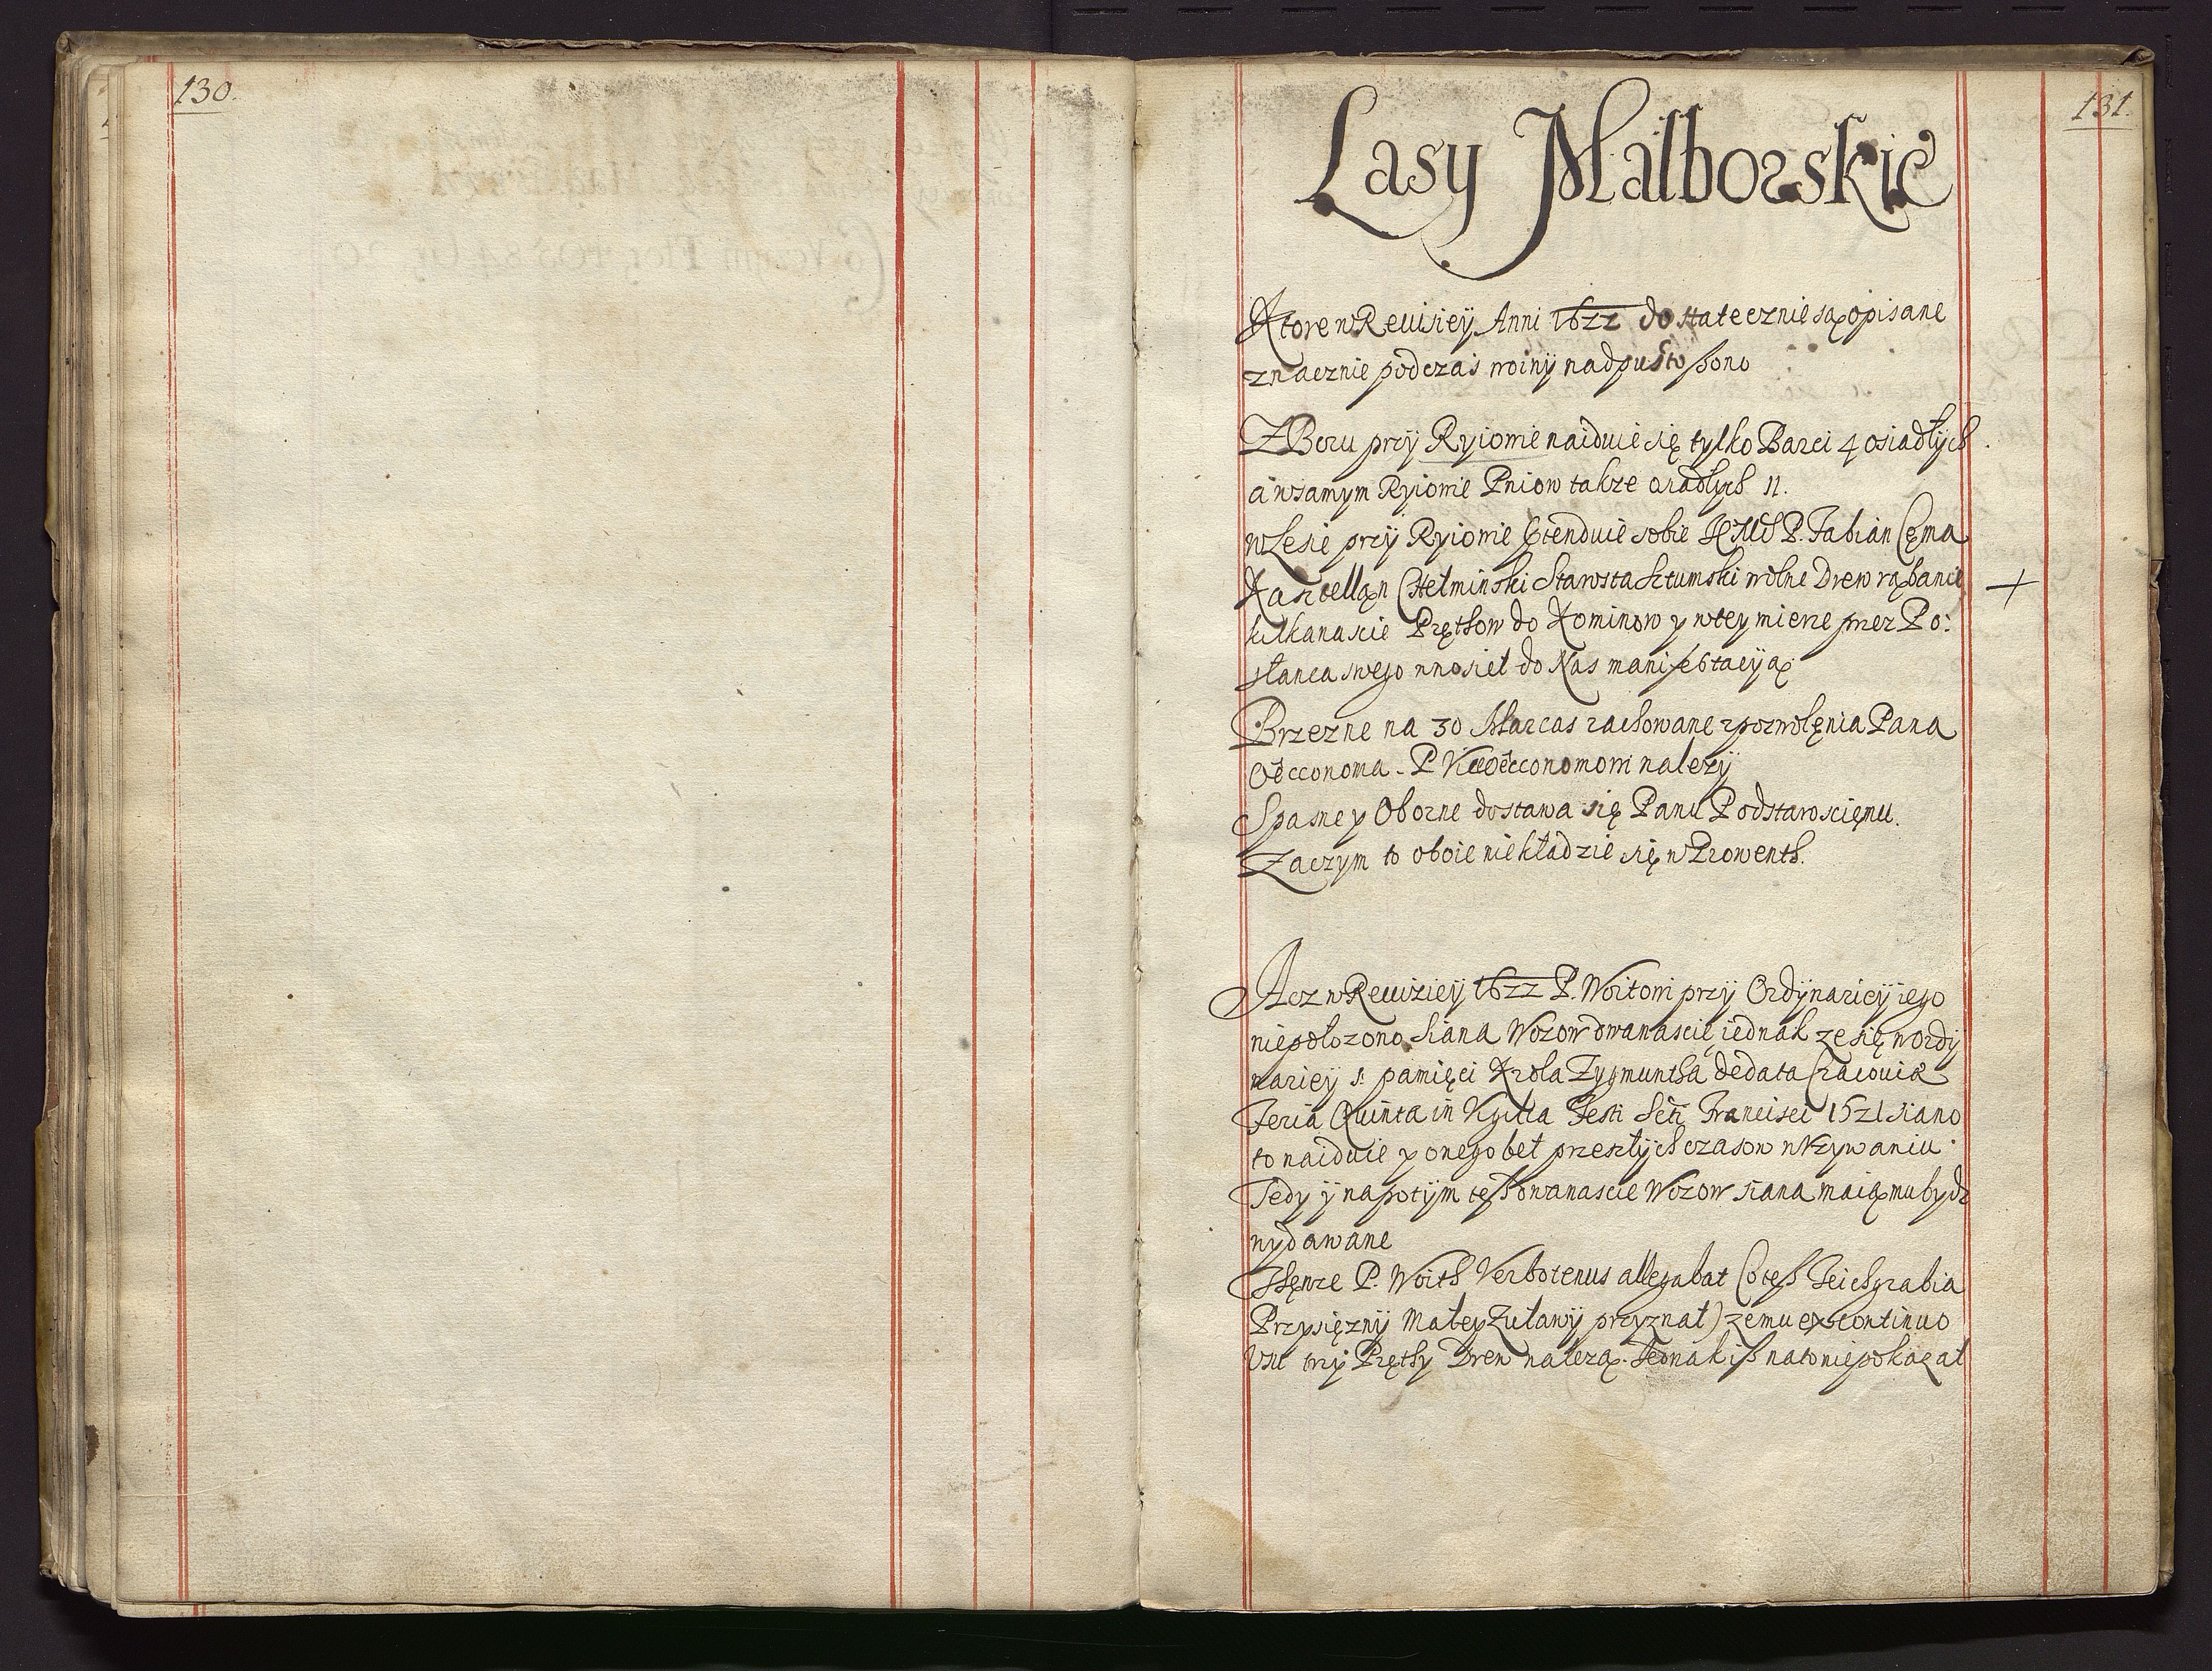 130.
131.
Lasy Malborskie
Ktore w Rewisiey Anni 1622 dostatecznie są opisane
znacznie podczas woiny nadpustoszono
Z Boru przy Ryiowie naiduie się tylko Barci 4 osiadłych
a w samym Ryiowie Pniow takze osiadłych 11.
w Lesie przy Ryiowie prętenduie sobie JEMść P. Fabian Cęma
Kasztelląn Chełminski Starosta Sztumski wolne Drew rąbanie
kilkanascie Prętkow do Kominow y w tey mierze przez Po:
słanca swego wnosiel do Nas manifestacyią
+
Brzezne na 30 Marcas rachowane z pozwolęnia Pana
Oecconoma. P. Viceoecconomowi nalezy
Spasne y Oborne dostawa się Panu Podstarosciemu.
Zaczym to oboie niekładzie się w Prowenth.
Acz w Rewiziey 1622 P. Woitowi przy Ordynariey iego
niepołozono siana Wozow dwanascie, iednak ze się w Ordy
nariey s. pamięci Krola Zygmuntha de data Cracoviæ
Feria Quinta in Vgilia Festi Scti Francisci 1521 siano
to naiduie y onego beł przeszłych czasow w Vzywaniu
Tedy y napotym tesz dwanascie Wozow siana maią mu bydz
wydawane
Tęnze P. Woith Verbotenus allegabat (co tesz Teichgrabia
Przysięzny Małey Zuławy przyznał) ze mu ex continuo
Vsu trzy Pręthy Drew nalezą. Jednak isz nato niepokazał